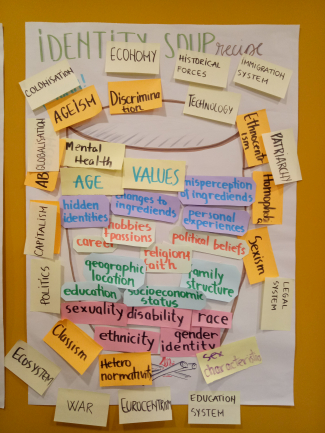 IDENTITY SOUP recipe
ECONOMY
HISTORICAL FORCES
IMMIGRATION SYSTEM
COLONISATION
AGEISM
Discrimination
TECHNOLOGY
Ethnocentrism
PATRIARCHY
GLOBALISATION
AB
Mental Health
AGE
VALUES
misperception of ingredients
Homophobia
hidden identities
changes to ingredients
personal experiences
CAPITALISM
hobbies + passions
career
political beliefs
Sexism
religion/faith
geographic location
family structure
POLITICS
LEGAL SYSTEM
education
socioeconomic status
sexuality
disability
race
Classism
ethnicity
gender identity
ECOSYSTEM
Heteronormativity
sex characteristics
WAR
EUROCENTRISM
EDUCATION SYSTEM